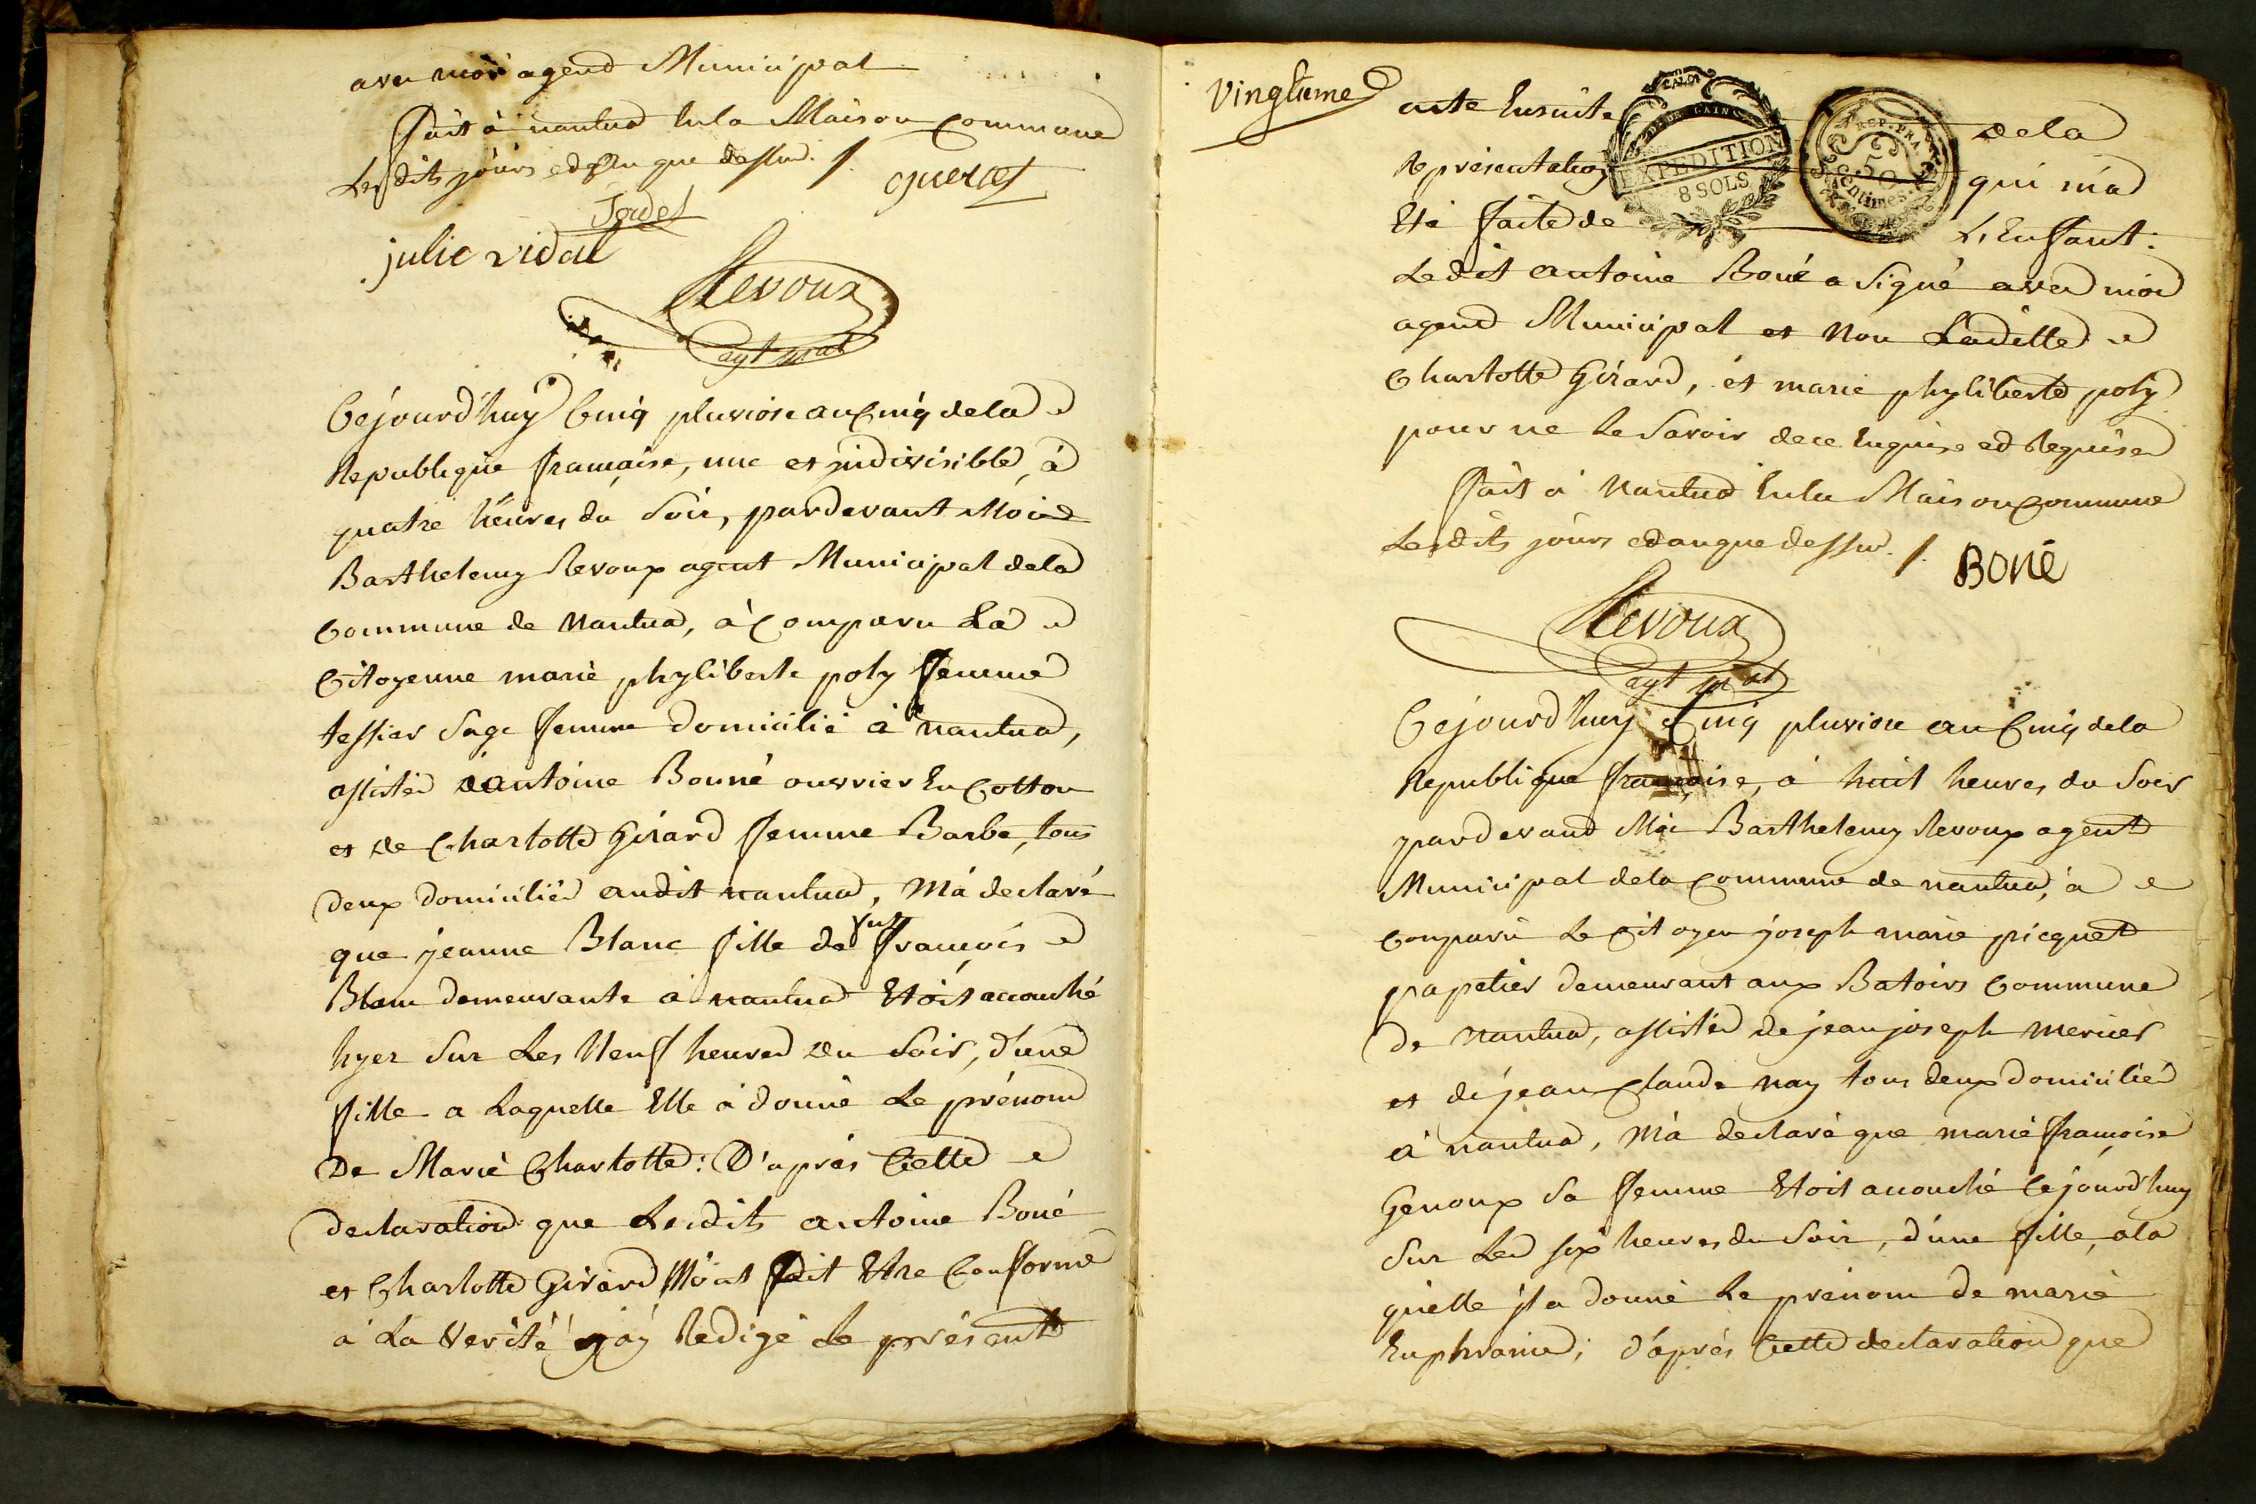 avec moi agend Municipal
fait à nantua en la Maison Commune
Les dits jours et an que dessus ./.
guerret
Jordet
julie vidal
Revoux
agt m.al
Cejourd'huy Cinq pluviose an Cinq de la
Republique française, une et indivisible, à
quatre heures du Soir, pardevant Moi
Barthelemy Revoux agent Municipal de la
Commune de Nantua, à Comparu La
Citoyenne marie phyliberte poly femme
tessier sage femme domicilié à nantua,
assistée d'antoine Bonné ouvrier En Cotton
et de Charlotte Girard femme Barbe, tous
deux domiciliés audit nantua, M'a declaré
que jeanne Blanc fille de feu françois
Blanc demeurante à nantua Etoit accouché
hyer sur Les Neuf heures du Soir, d'une
fille a Laquelle Elle à donné Le prénom
De Marie Charlotte: D'après Cette
declaration que Lesdits antoine Boné
et Charlotte Girard M'ont fait Etre Conforme
à La Verité j'ay Redigé Le présent
Vingtième
acte Ensuite de la
représentation qui m'a
Eté faite de L'Enfant:
EXPEDITION
8 SOLS
REP. FRA
50
Centimes
Ledit antoine Boné a signé avec moi
agend Municipal et Non Laditte
Charlotte Girard, et marie phyliberte poly
pour ne Le Savoir de ce Enquise et Requise
fait à Nantua En la Maison Commune
Lesdits jours et an que dessus ./.
BONE
Revoux
agt m.al
Cejourd'huy Cinq pluviose an Cinq de la
Republique française, à huit heures du Soir
pardevand Moi Barthelemy Revoux agent
Municipal de la Commune de nantua, à
Comparu Le Citoyen joseph marie picquet
papetier demeurant aux Batoirs Commune
de Nantua, assisté de jean joseph Mercier
et de jean Claude nay tous deux domiciliés
à nantua, M'à declaré que marie françoise
Genoux Sa femme Etoit accouché Cejourd'huy
Sur Les six heures du Soir, d'une fille, a la
quelle il a donné Le prénom de marie
Euphrasine; d'après Cette declaration que